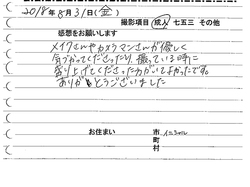 2018年8月31日(金)
撮影項目(成人)七五三 その他
感想をお願いします
メイクさんやカメラマンさんが優しく
気づかってくださったり、撮っている時に
盛り上げてくださった方がいてよかったです。
ありがとうございました
お住まい 市 イニシャル
町
村